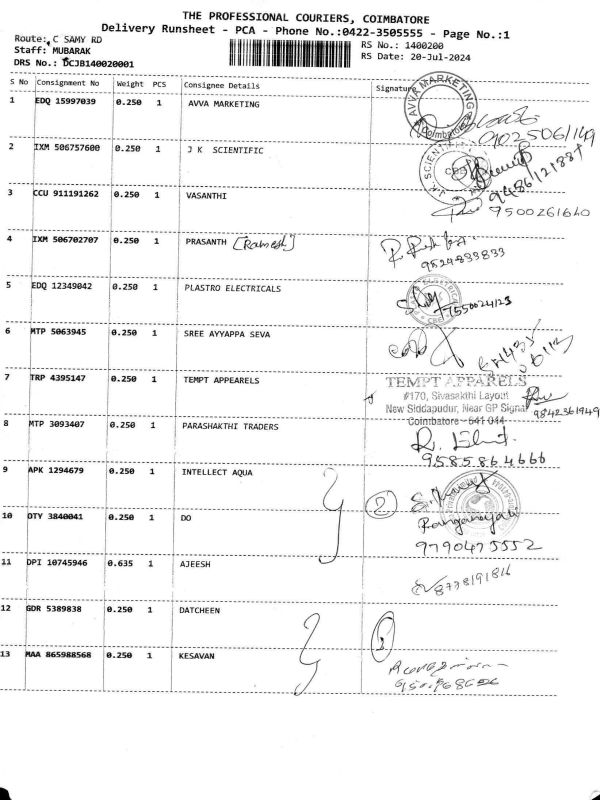 THE PROFESSIONAL COURIERS, COIMBATORE
Delivery Runsheet - PCA - Phone No.:0422-3505555 - Page No.:1
Route: C SAMY RD
RS No.: 1400200
Staff: MUBARAK
RS Date: 20-Jul-2024
DRS No.: DCJB140020001
S No Consignment No Weight PCS Consignee Details Signature
1 EDQ 15997039 0.250 1 AVVA MARKETING
AVVA MARKETING
Coimbatore
2 IXM 506757600 0.250 1 J K SCIENTIFIC
J.K. SCIENTIFIC
3 CCU 911191262 0.250 1 VASANTHI
9500261640
4 IXM 506702707 0.250 1 PRASANTH [Ramesh]
9524833833
5 EDQ 12349042 0.250 1 PLASTRO ELECTRICALS
7550024123
6 MTP 5063945 0.250 1 SREE AYYAPPA SEVA
7 TRP 4395147 0.250 1 TEMPT APPEARELS
TEMPT APPARELS
#170, Sivasakthi Layout
New Siddapudur, Near GP Signal
Coimbatore - 641 044
9842361949
8 MTP 3093407 0.250 1 PARASHAKTHI TRADERS
9585864666
9 APK 1294679 0.250 1 INTELLECT AQUA
2
10 DTY 3840041 0.250 1 DO
9790475552
11 DPI 10745946 0.635 1 AJEESH
12 GDR 5389838 0.250 1 DATCHEEN
13 MAA 865988568 0.250 1 KESAVAN